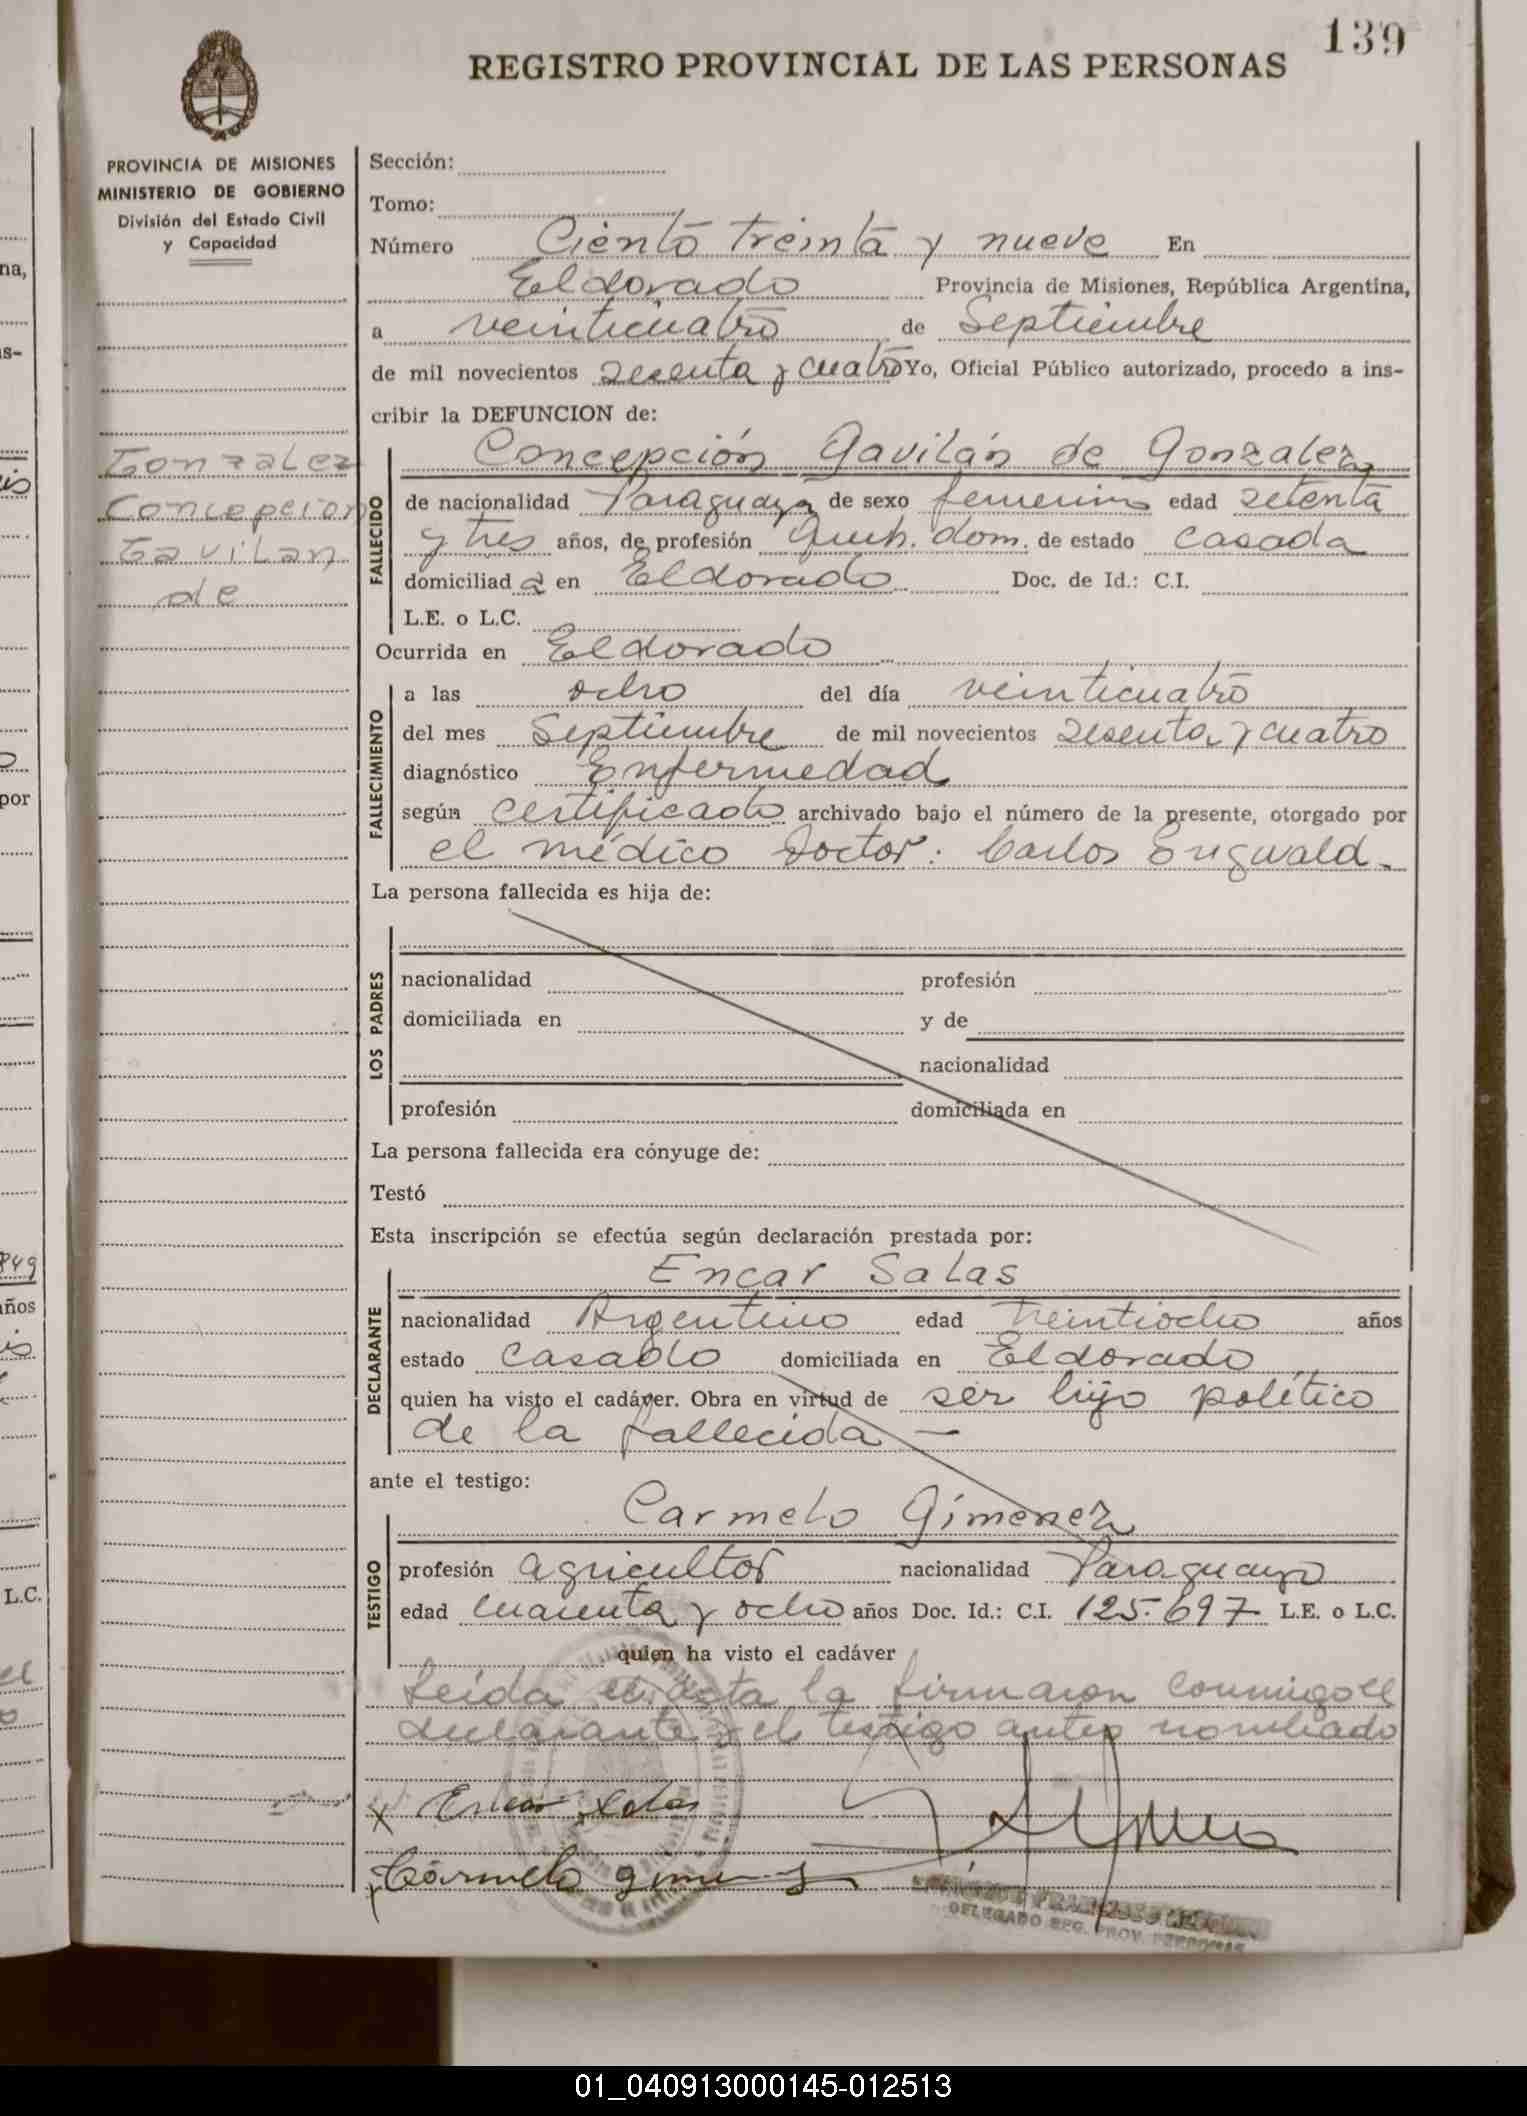 139
REGISTRO PROVINCIAL DE LAS PERSONAS
PROVINCIA DE MISIONES
MINISTERIO DE GOBIERNO
División del Estado Civil
y Capacidad
Gonzalez
Concepcion
Gavilan
de
Sección:
Tomo:
Número Ciento treinta y nueve En
Eldorado Provincia de Misiones, República Argentina,
a veinticuatro de Septiembre
de mil novecientos sesenta y cuatro Yo, Oficial Público autorizado, procedo a ins-
cribir la DEFUNCION de:
FALLECIDO
Concepción Gavilán de Gonzalez
de nacionalidad Paraguaya de sexo femenino edad setenta
y tres años, de profesión Queh. dom. de estado casada
domiciliad a en Eldorado Doc. de Id.: C.I.
L.E. o L.C.
Ocurrida en Eldorado
FALLECIMIENTO
a las ocho del día veinticuatro
del mes Septiembre de mil novecientos sesenta y cuatro
diagnóstico Enfermedad
según certificado archivado bajo el número de la presente, otorgado por
el médico Doctor: Carlos
La persona fallecida es hija de:
LOS PADRES
nacionalidad profesión
domiciliada en y de
nacionalidad
profesión domiciliada en
La persona fallecida era cónyuge de:
Testó
Esta inscripción se efectúa según declaración prestada por:
DECLARANTE
Encar Salas
nacionalidad Argentino edad treintiocho años
estado casado domiciliada en Eldorado
quien ha visto el cadáver. Obra en virtud de ser hijo político
de la fallecida —
ante el testigo:
TESTIGO
Carmelo Gimenez
profesión agricultor nacionalidad Paraguayo
edad cuarenta y ocho años Doc. Id.: C.I. 125.697 L.E. o L.C.
quien ha visto el cadáver
Leida el acta la firmaron conmigo el
declarante y el testigo antes nombrado
x Encar Salas
Carmelo Gimenez
DELEGADO REG. PROV. PERSONAS
na,
s-
por
849
años
L.C.
01_040913000145-012513